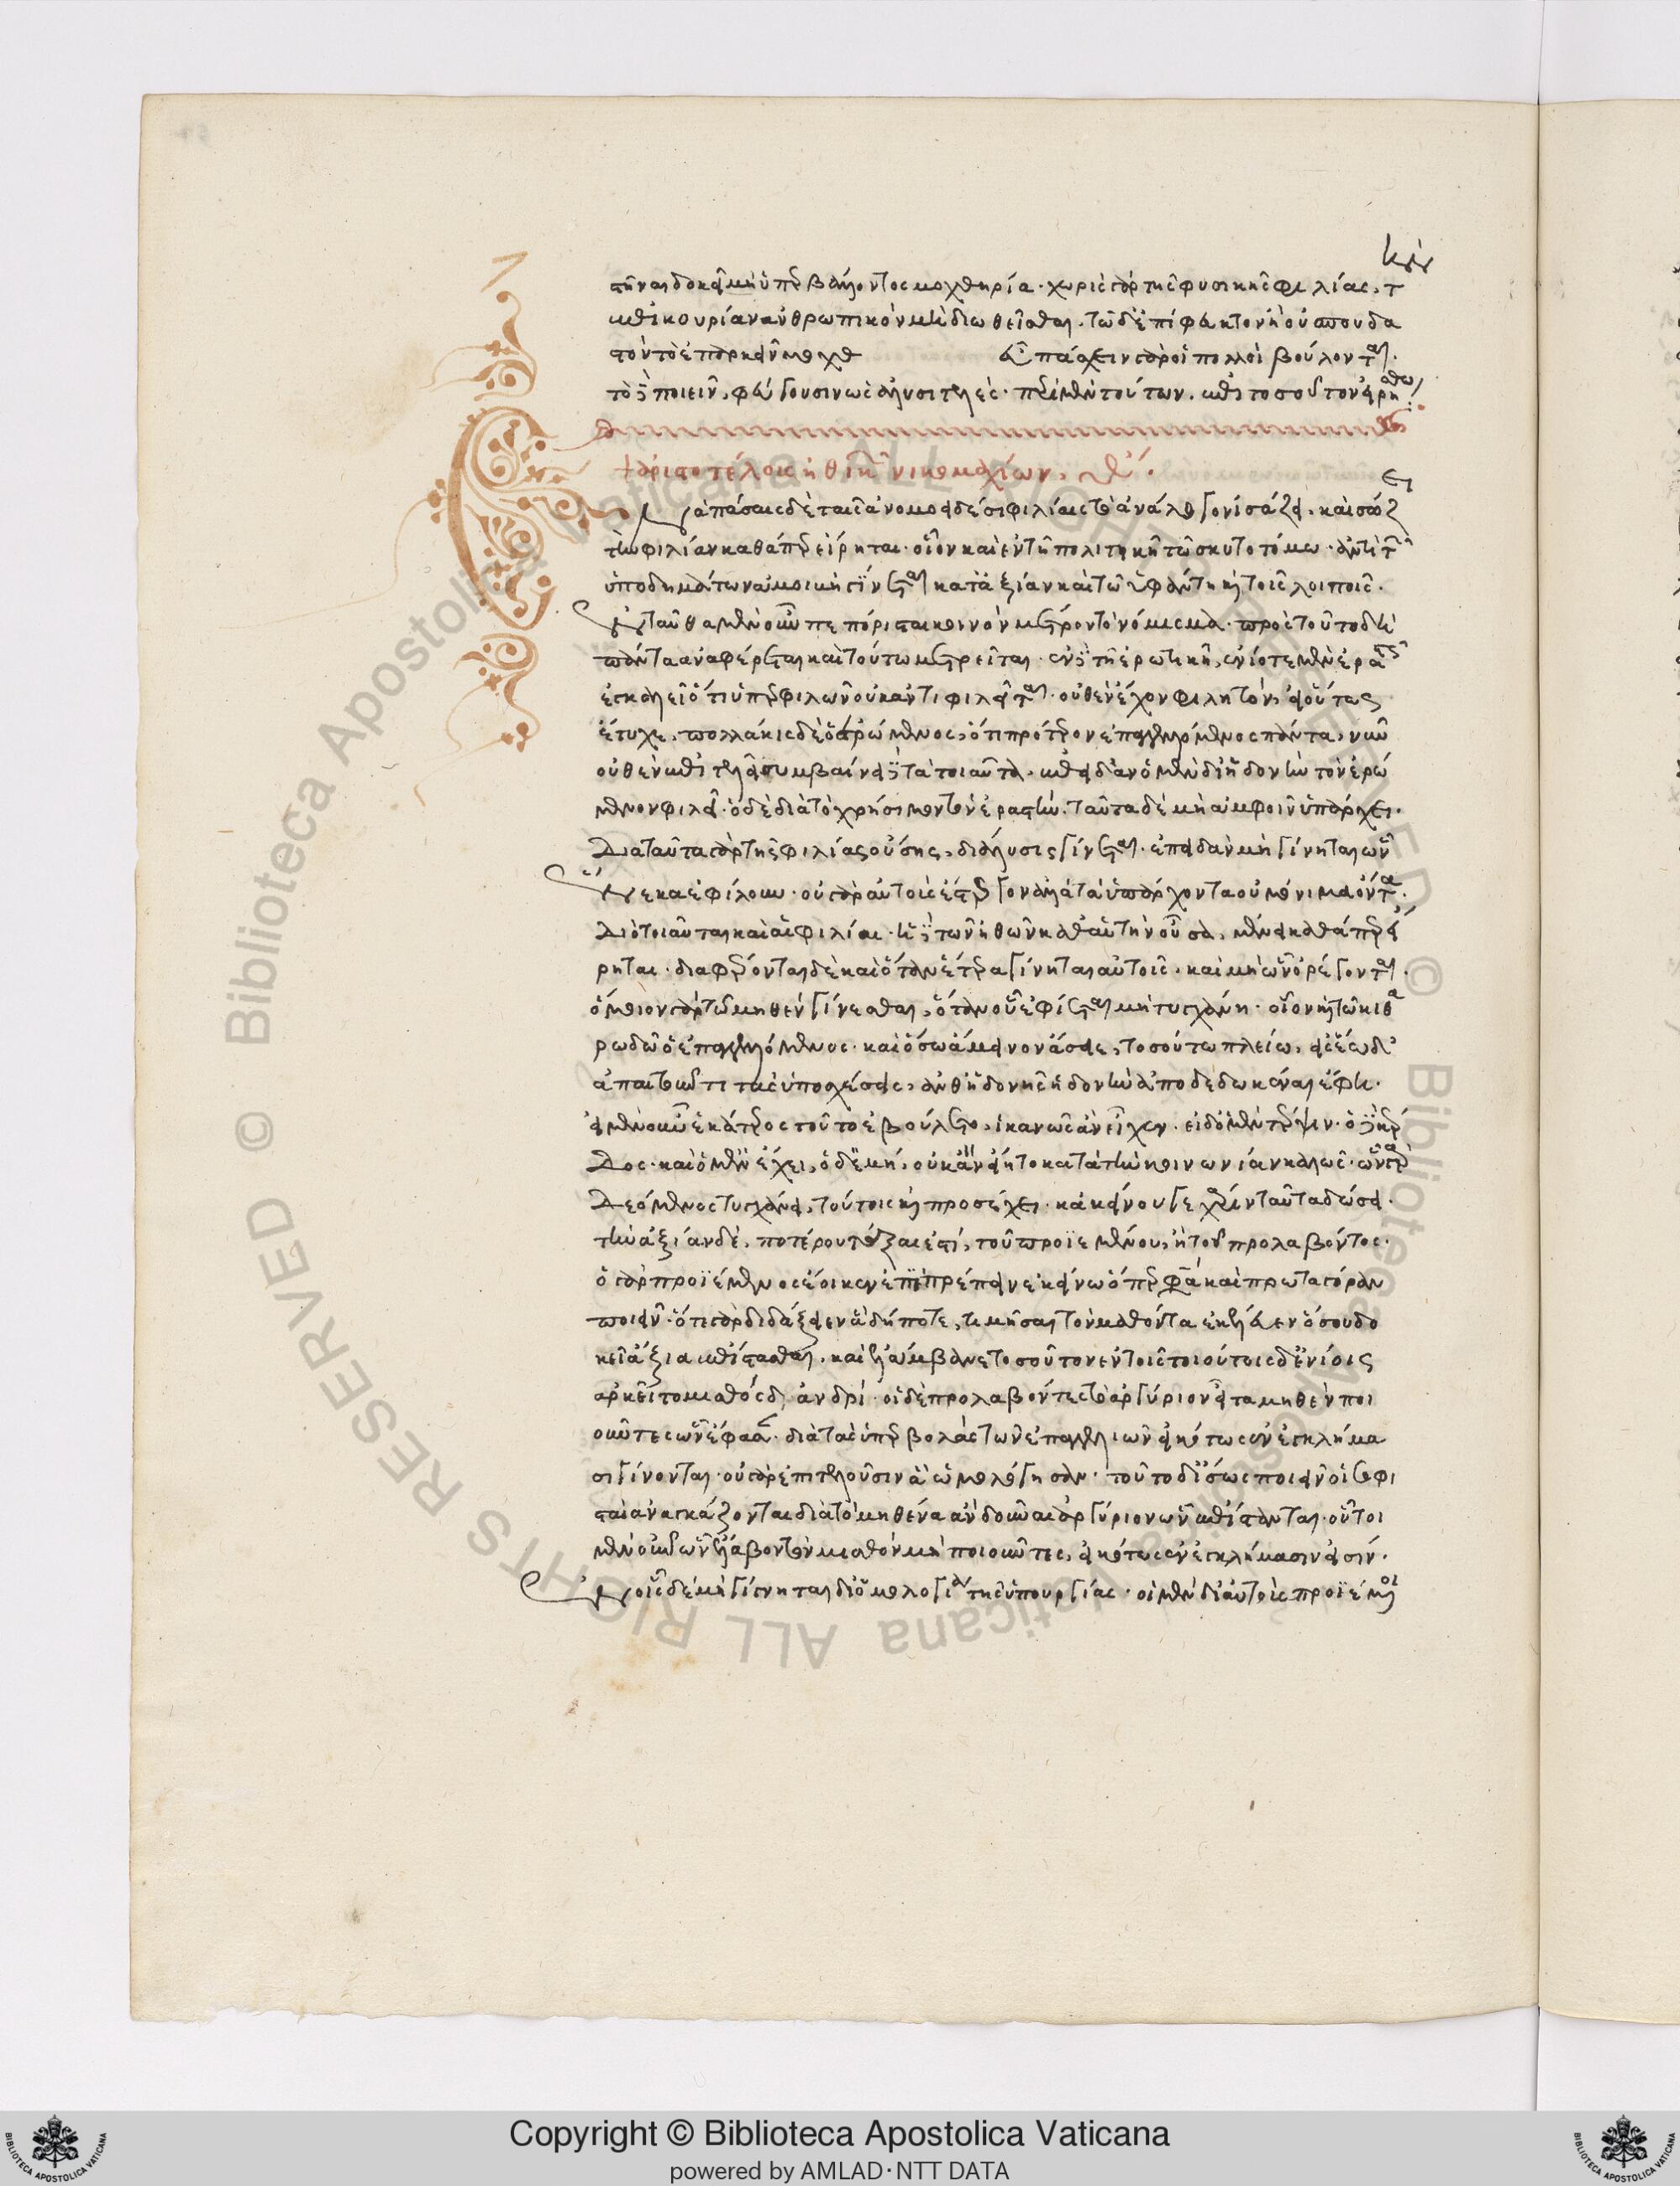 στῆναι δοκεῖ μὴ ὑπερβάλλοντος μοχθηρία· χωρὶς γὰρ τῆς φυσικῆς φιλίας, τ
ἐπικουρίαν ἀνθρωπικὸν μὴ διωθεῖσθαι. τῶ δὲ ἐπίφευκτον ἢ οὐ σπουδα
στὸν τὸ ἐπαρκεῖν μοχθ εὖ πάσχειν γὰρ οἱ πολλοὶ βούλονται·
τὸ δὲ ποιεῖν, φεύγουσιν ὡς ἀλυσιτελές· περὶ μὲν τούτων, ἐπὶ τοσοῦτον εἰρήσθω:
+ ἀριστοτέλους ἠθικῶν νικομαχίων,
Ἐν ἁπάσαις δὲ ταῖς ἀνομοειδέσι φιλίαις τὸ ἀνάλογον ἰσάζει. καὶ σώζει
τὴν φιλίαν καθάπερ εἴρηται· οἷον καὶ ἐν τῆ πολιτικῆ τῶ σκυτοτόμω· ἀντὶ τῶν
ὑποδημάτων ἀμοιβὴ γίνεται κατὰ ἀξίαν καὶ τῶ ὑφάντη καὶ τοῖς λοιποῖς.
ἐνταῦθα μὲν οὖν πεπόρισται κοινὸν μέτρον τὸ νόμισμα· πρὸς τοῦτο δὴ
πάντα ἀναφέρεται καὶ τούτω μετρεῖται· ἐν δὲ τῆ ἐρωτικῆ, ἐνίοτε μὲν ὁ ἐραστὴς
ἐγκαλεῖ ὅτι ὑπερφιλῶν οὐκ ἀντιφιλεῖται· οὐθὲν ἔχον φιλητόν, εἰ οὕτως
ἔτυχε, πολλάκις δὲ ὁ ἐρώμενος, ὅτι πρότερον ἐπαγγελλόμενος πάντα, νῦν
οὐθὲν ἐπιτελεῖ· συμβαίνει δὲ τὰ τοιαῦτα. ἐπειδὰν ὁ μὲν δι' ἡδονὴν τὸν ἐρώ
μενον φιλεῖ· ὁ δὲ διὰ τὸ χρήσιμον τὸν ἐραστήν. ταῦτα δὲ μὴ ἀμφοῖν ὑπάρχει.
διὰ ταῦτα γὰρ τῆς φιλίας οὔσης, διάλυσις γίνεται. ἐπειδὰν μὴ γίνηται ὧν
ἕνεκα ἐφίλουν· οὐ γὰρ αὐτοὺς ἔστεργον ἀλλὰ τὰ ὑπάρχοντα οὐ μόνιμα ὄντα.
διὸ τοιαῦται καὶ αἱ φιλίαι· ἡ δὲ τῶν ἠθῶν καθ' αὑτὴν οὖσα, μένει καθάπερ εἴ
ρηται· διαφέρονται δὲ καὶ ὅταν ἕτερα γίνηται αὐτοῖς. καὶ μὴ ὧν ὀρέγονται.
ὅμοιον γὰρ τῶ μηθὲν γίνεσθαι, ὅταν οὗ ἐφίεται μὴ τυγχάνη· οἷον καὶ τῶ κιθα
ρωδῶ ὁ ἐπαγγελλόμενος· καὶ ὅσω ἄμεινον ἄσειε, τοσούτω πλείω, εἰς ἕω δ'
ἀπαιτοῦντι τὰς ὑποσχέσεις, ἀνθ' ἡδονῆς ἡδονὴν ἀποδεδωκέναι ἔφη.
εἰ μὲν οὖν ἑκάτερος τοῦτο ἐβούλετο, ἱκανῶς ἂν εἶχεν. εἰ δ' ὁ μὲν τέρψιν· ὁ δὲ κέρ
δος· καὶ ὁ μὲν ἔχει, ὁ δὲ μή, οὐκ ἂν εἴη τὸ κατὰ τὴν κοινωνίαν καλῶς· ὧν γὰρ
δεόμενος τυγχάνει, τούτοις καὶ προσέχει. κἀκείνου γε χάριν ταῦτα δώσει.
τὴν ἀξίαν δὲ, ποτέρου τάξαι ἐστί, τοῦ προϊεμένου, ἢ τοῦ προλαβόντος.
ὁ γὰρ προϊέμενος ἔοικεν ἐπιτρέπειν ἐκείνω ὅπερ φασὶ καὶ πρωταγόραν
ποιεῖν· ὅτε γὰρ διδάξειεν ἃ δήποτε, τιμῆσαι τὸν μαθόντα ἐκέλευεν ὅσου δο
κεῖ ἄξια ἐπίστασθαι. καὶ ἐλάμβανε τοσοῦτον ἐν τοῖς τοιούτοις δ' ἐνίοις
ἀρκεῖ τὸ μισθὸς δ' ἀνδρί· οἱ δὲ προλαβόντες τὸ ἀργύριον εἶτα μηθὲν ποι
οῦντες ὧν ἔφασαν· διὰ τὰς ὑπερβολὰς τῶν ἐπαγγελιῶν εἰκότως ἐν ἐγκλήμα
σι γίνονται· οὐ γὰρ ἐπιτελοῦσιν ἃ ὡμολόγησαν. τοῦτο δ' ἴσως ποιεῖν οἱ σοφι
σταὶ ἀναγκάζονται διὰ τὸ μηθένα ἂν δοῦναι ἀργύριον ὧν ἐπίστανται· οὗτοι
μὲν οὖν ὧν ἔλαβον τὸν μισθὸν μὴ ποιοῦντες, εἰκότως ἐν ἐγκλήμασιν εἰσίν.
ἐν οἷς δὲ μὴ γίγνηται διομολογία τῆς ὑπουργίας· οἱ μὲν δι' αὑτοὺς προϊέμενοι
© Biblioteca Apostolica Vaticana ALL RIGHTS RESERVED
Copyright © Biblioteca Apostolica Vaticana
powered by AMLAD·NTT DATA
BIBLIOTECA APOSTOLICA VATICANA
BIBLIOTECA APOSTOLICA VATICANA